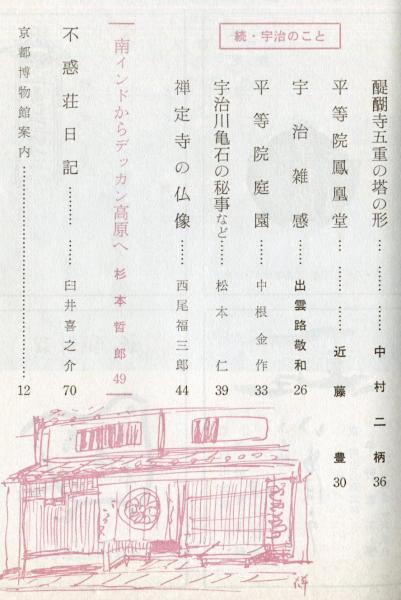 続・宇治のこと
醍醐寺五重の塔の形………中村二柄 36
平等院鳳凰堂………近藤豊 30
宇治雑感……出雲路敬和 26
平等院庭園……中根金作 33
宇治川亀石の秘事など……松本仁 39
禅定寺の仏像……西尾福三郎 44
南インドからデッカン高原へ 杉本哲郎 49
不惑荘日記………臼井喜之介 70
京都博物館案内………………………………12